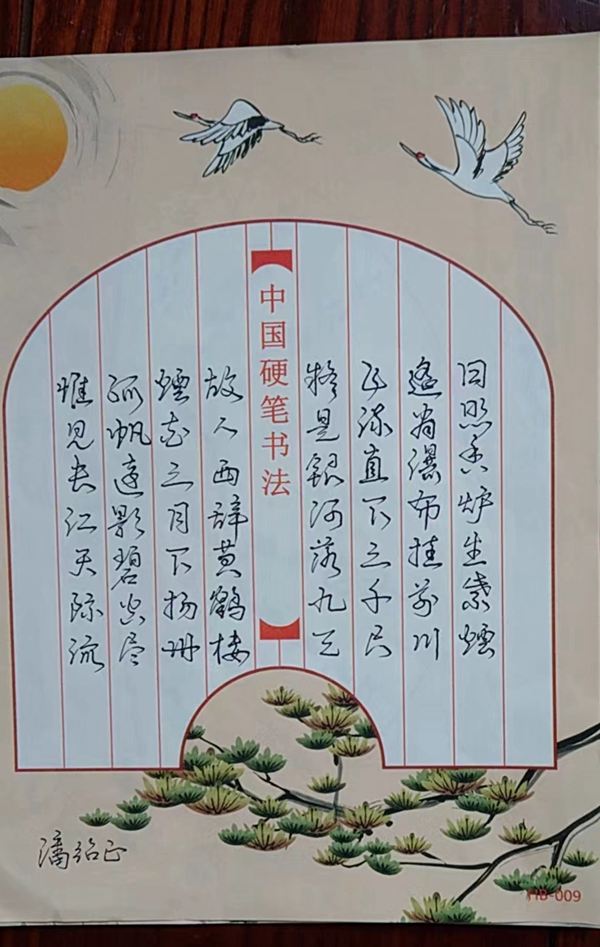 日照香炉生紫烟
遥看瀑布挂前川
飞流直下三千尺
疑是银河落九天
中国硬笔书法
故人西辞黄鹤楼
烟花三月下扬州
孤帆远影碧空尽
惟见长江天际流
YIB-009